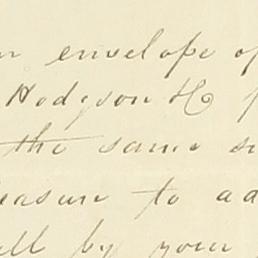 envelope of
Hodgson &
the same
easure to ad
ll by your